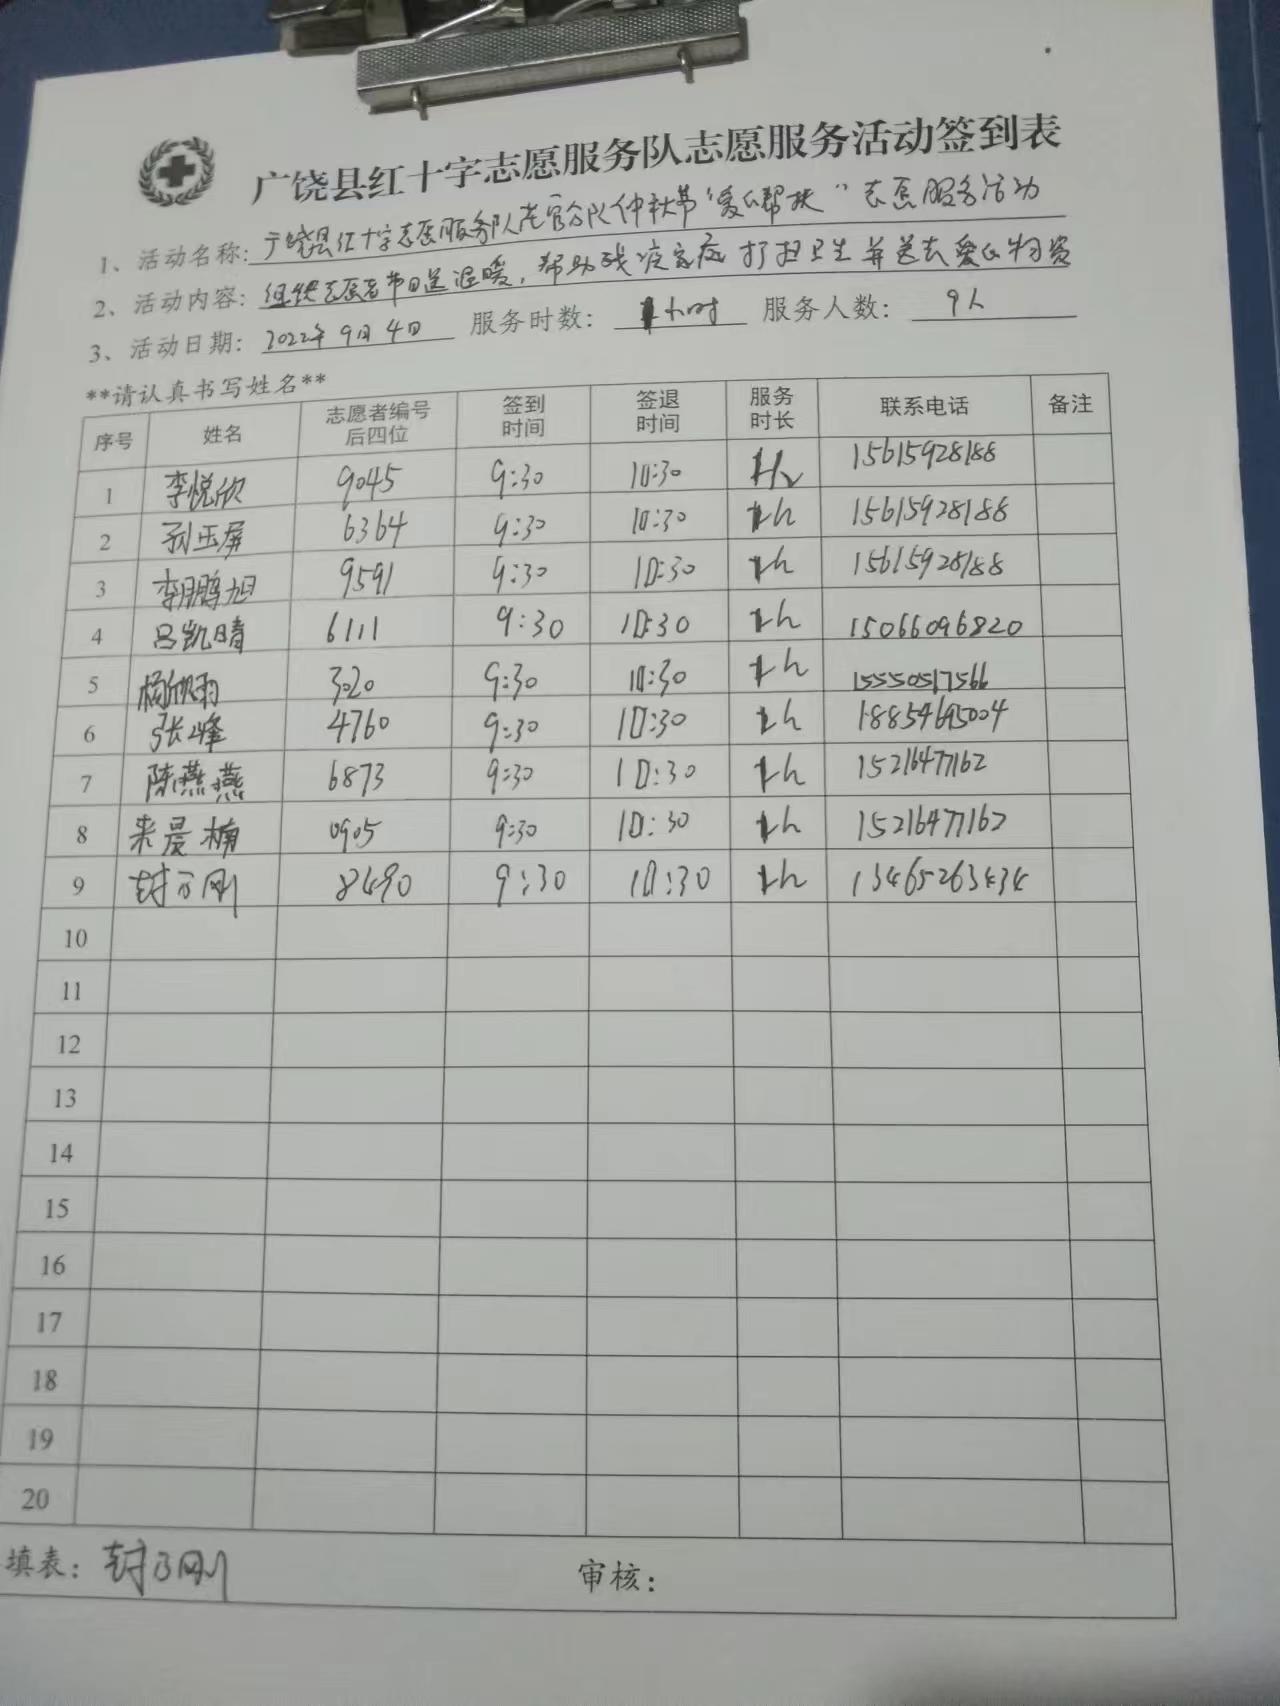 广饶县红十字志愿服务队志愿服务活动签到表
1、活动名称：广饶县红十字志愿服务队花官分队仲秋节“爱心帮扶”志愿服务活动
2、活动内容：组织志愿者节日送温暖，帮助残疾家庭打扫卫生并送去爱心物资
3、活动日期：2022年9月4日 服务时数：1小时 服务人数：9人
**请认真书写姓名**
序号 姓名 志愿者编号后四位 签到时间 签退时间 服务时长 联系电话 备注
1 李悦欣 9045 9:30 10:30 1h 15615928188
2 孙玉屏 6364 9:30 10:30 1h 15615928188
3 李鹏旭 9591 9:30 10:30 1h 15615928188
4 吕凯晴 6111 9:30 10:30 1h 15066096820
5 杨欣雨 3020 9:30 10:30 1h 15550517566
6 张峰 4760 9:30 10:30 1h 18854695004
7 陈燕燕 6873 9:30 10:30 1h 15216477162
8 来晨楠 0905 9:30 10:30 1h 15216477162
9 封乃刚 8490 9:30 10:30 1h 13465263434
10
11
12
13
14
15
16
17
18
19
20
填表：封乃刚 审核：